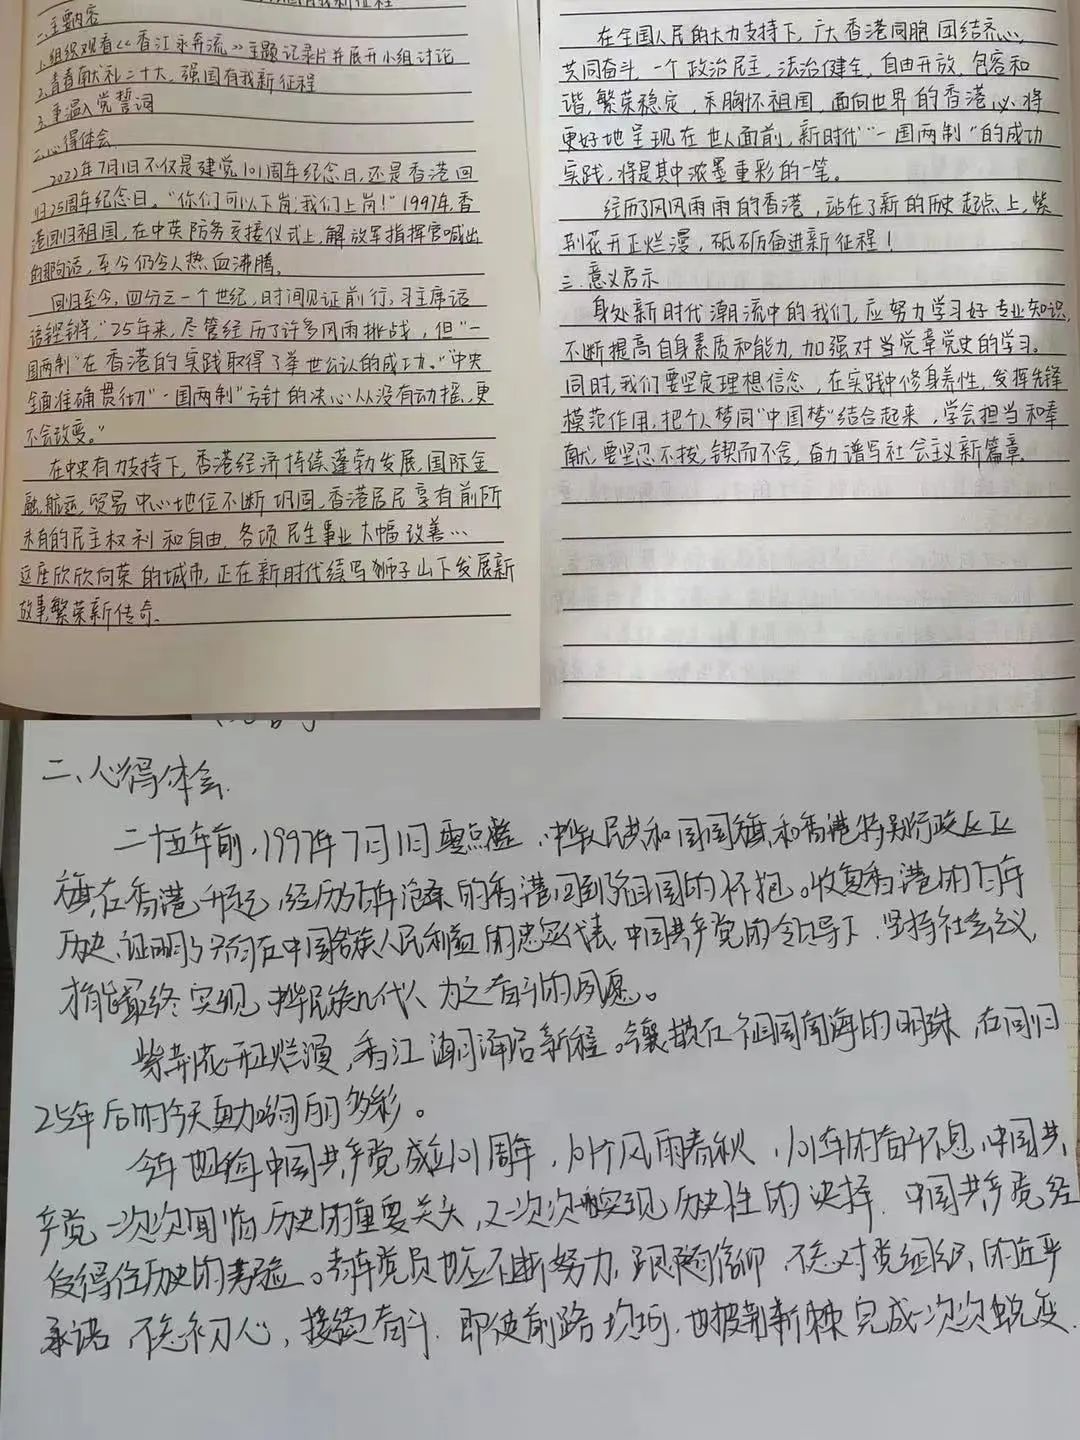 有我新征程
一、主要内容
1.组织观看《香江永奔流》主题记录片并展开小组讨论
2.青春献礼二十大，强国有我新征程
3.重温入党誓词
二、心得体会
2022年7月1日不仅是建党101周年纪念日，还是香港回
归25周年纪念日。“你们可以下岗，我们上岗！”1997年，香
港回归祖国，在中英防务交接仪式上，解放军指挥官喊出
的那句话，至今仍令人热血沸腾。
回归至今，四分之一个世纪，时间见证前行，习主席话
语铿锵，“25年来，尽管经历了许多风雨挑战，但“一
国两制”在香港的实践取得了举世公认的成功。”“中央
全面准确贯彻“一国两制”方针的决心从没有动摇，更
不会改变。”
在中央有力支持下，香港经济持续蓬勃发展，国际金
融，航运，贸易中心地位不断巩固，香港居民享有前所
未有的民主权利和自由，各项民生事业大幅改善…
这座欣欣向荣的城市，正在新时代续写狮子山下发展新
故事，繁荣新传奇。
在全国人民的大力支持下，广大香港同胞团结齐心，
共同奋斗，一个政治民主，法治健全，自由开放，包容和
谐，繁荣稳定，未胸怀祖国，面向世界的香港必将
更好地呈现在世人面前，新时代“一国两制”的成功
实践，将是其中浓墨重彩的一笔。
经历了风风雨雨的香港，站在了新的历史起点上，紫
荆花开正烂漫，砥砺奋进新征程！
三.意义启示
身处新时代潮流中的我们，应努力学习好专业知识，
不断提高自身素质和能力，加强对党章党史的学习。
同时，我们要坚定理想信念，在实践中修身养性，发挥先锋
模范作用，把个人梦同“中国梦”结合起来，学会担当和奉
献，要坚忍不拔，锲而不舍，奋力谱写社会主义新篇章。
二、心得体会
二十五年前，1997年7月1日零点整，中华人民共和国国旗和香港特别行政区区
旗在香港升起，经历了百年沧桑的香港回到了祖国的怀抱。收复香港的百年
历史，证明了只有在中国各族人民利益的忠实代表，中国共产党的领导下，坚持社会主义，
才能最终实现中华民族几代人为之奋斗的夙愿。
紫荆花开正烂漫，香江潮涌启新程。镶嵌在祖国南海的明珠，在回归
25年后的今天更加绚丽多彩。
今年也是中国共产党成立101周年，101个风雨春秋，101年的奋斗不息，中国共
产党一次次面临历史的重要关头，又一次次实现历史性的抉择，中国共产党经
受得住历史的考验。青年党员也应不断努力，跟随信仰，不忘对党组织的庄严
承诺，不忘初心，接续奋斗，即使前路坎坷，也披荆斩棘完成一次次蜕变.